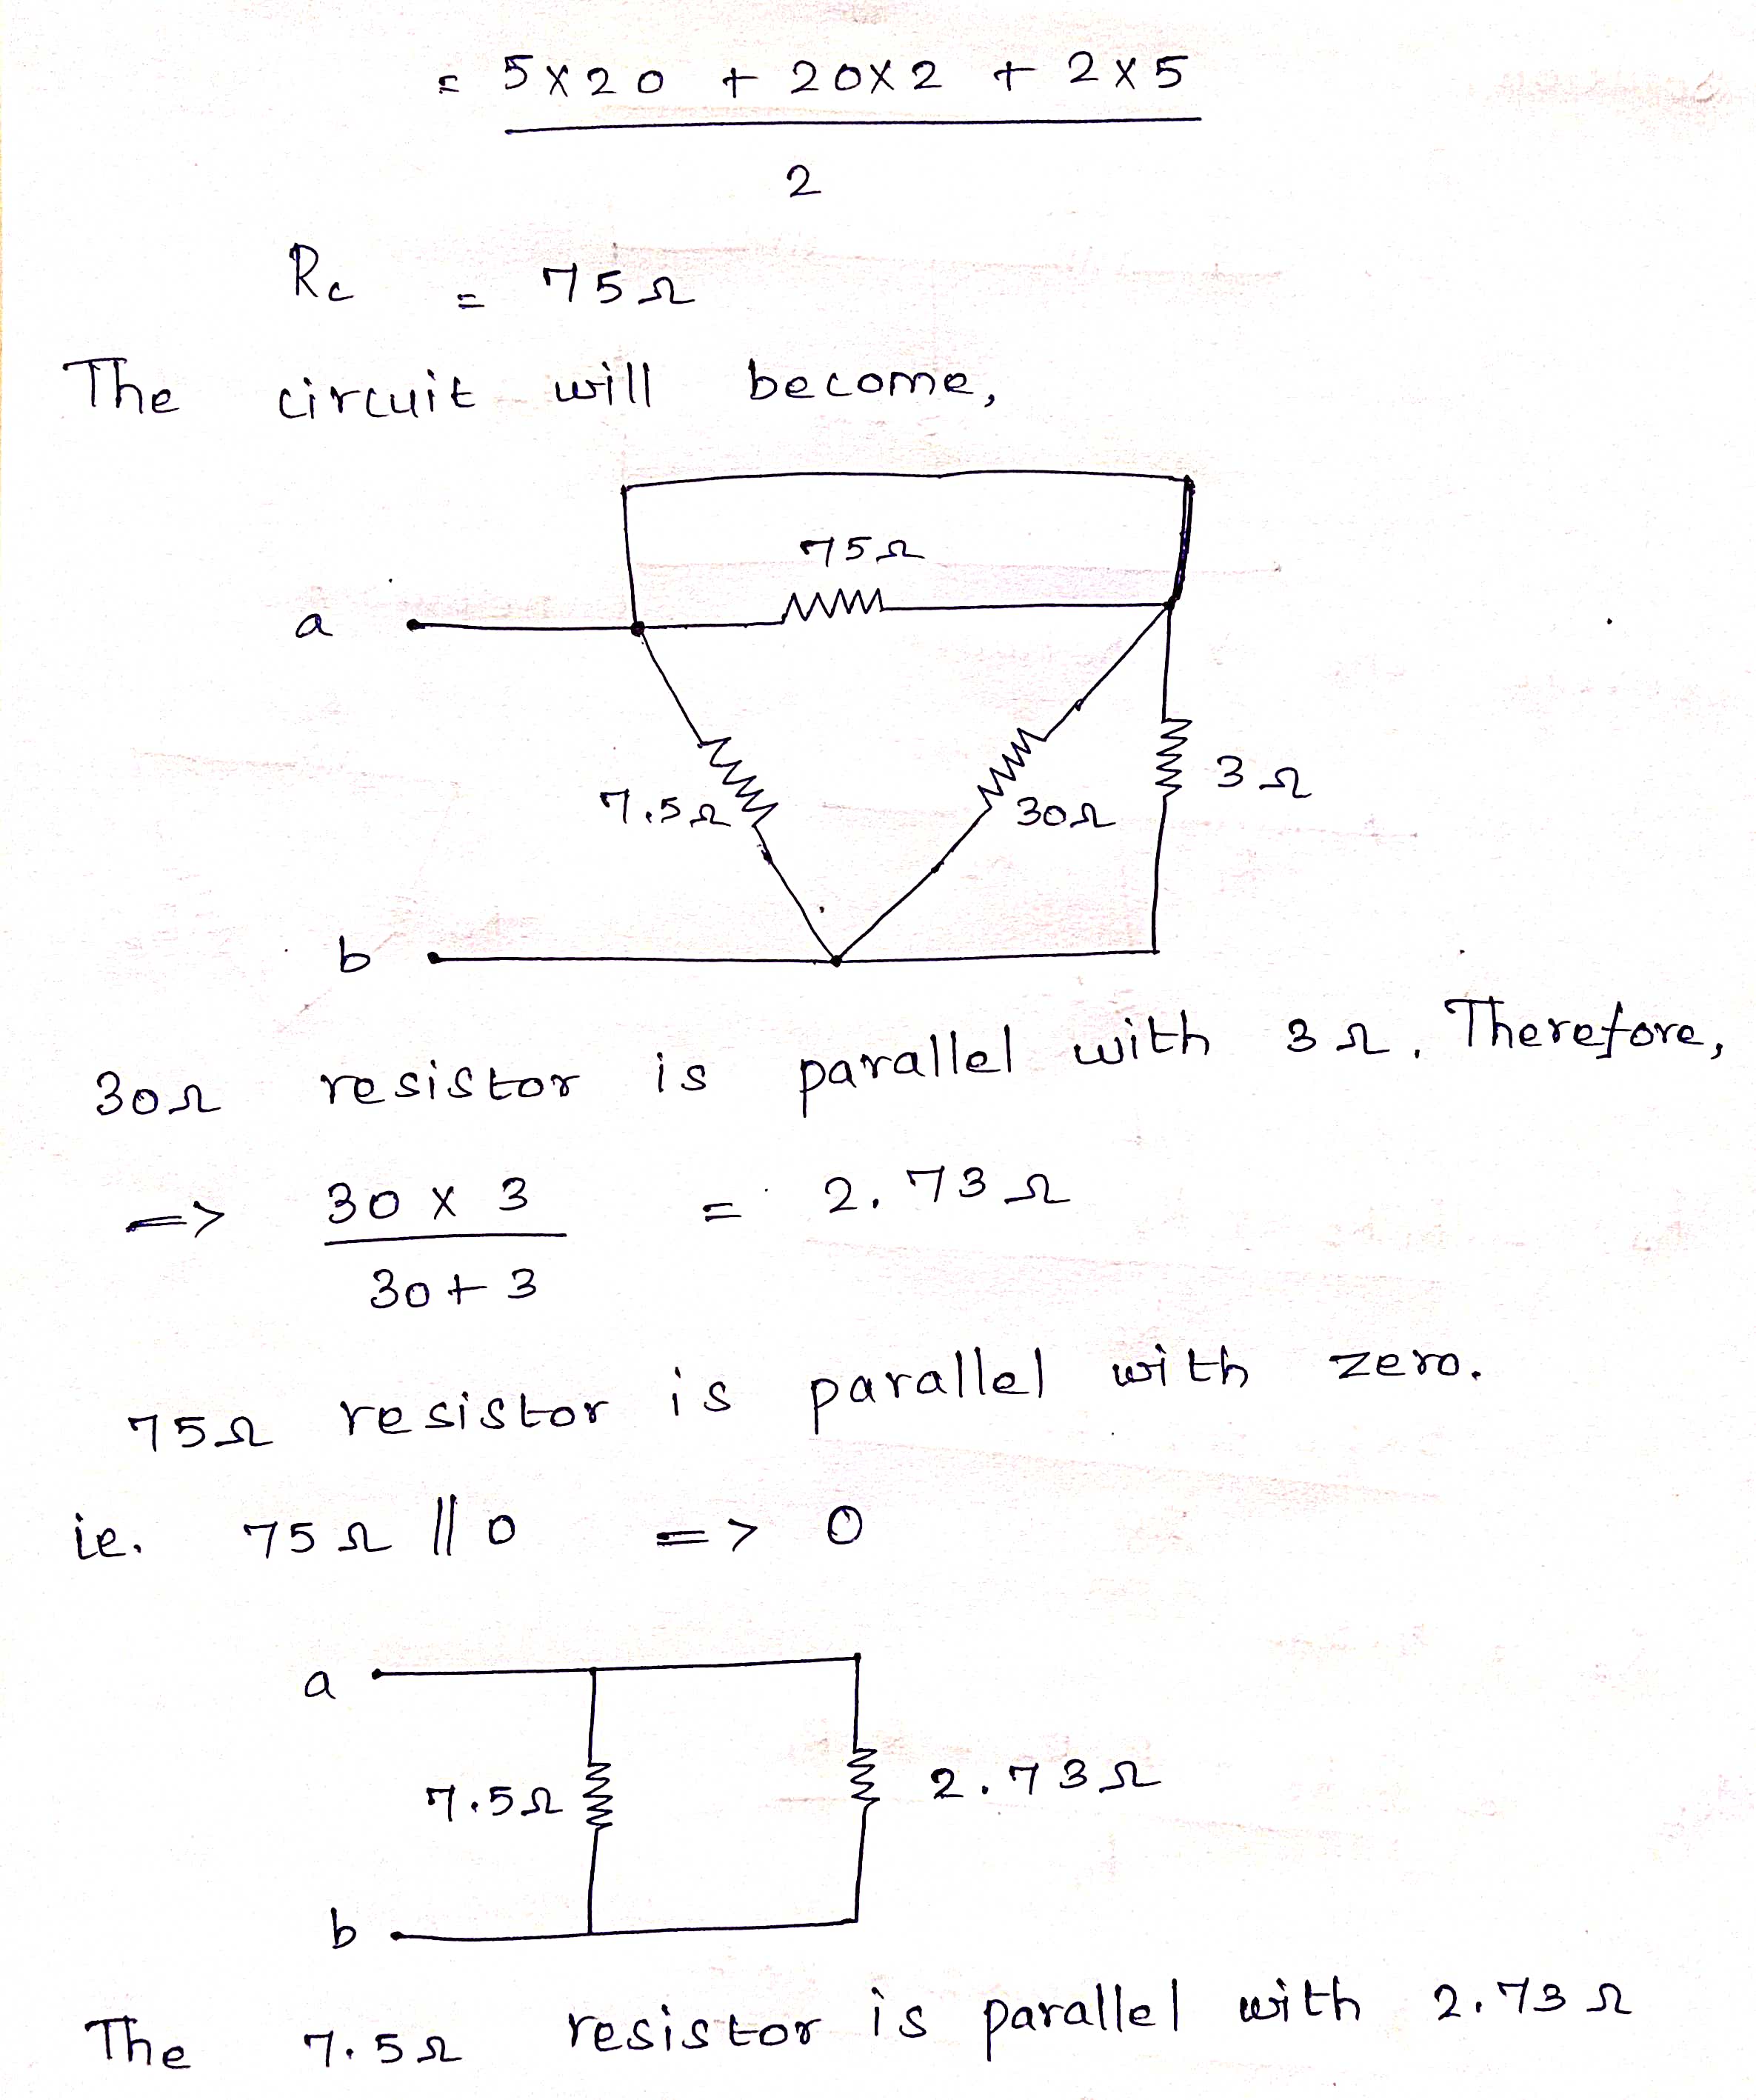 = 5×20 + 20×2 + 2×5
2
Rc = 75Ω
The circuit will become,
75Ω
a
7.5Ω
30Ω
3Ω
b
30Ω resistor is parallel with 3Ω. Therefore,
=> 30 × 3 = 2.73Ω
30+3
75Ω resistor is parallel with zero.
ie. 75Ω || 0 => 0
a
7.5Ω
2.73Ω
b
The 7.5Ω resistor is parallel with 2.73Ω